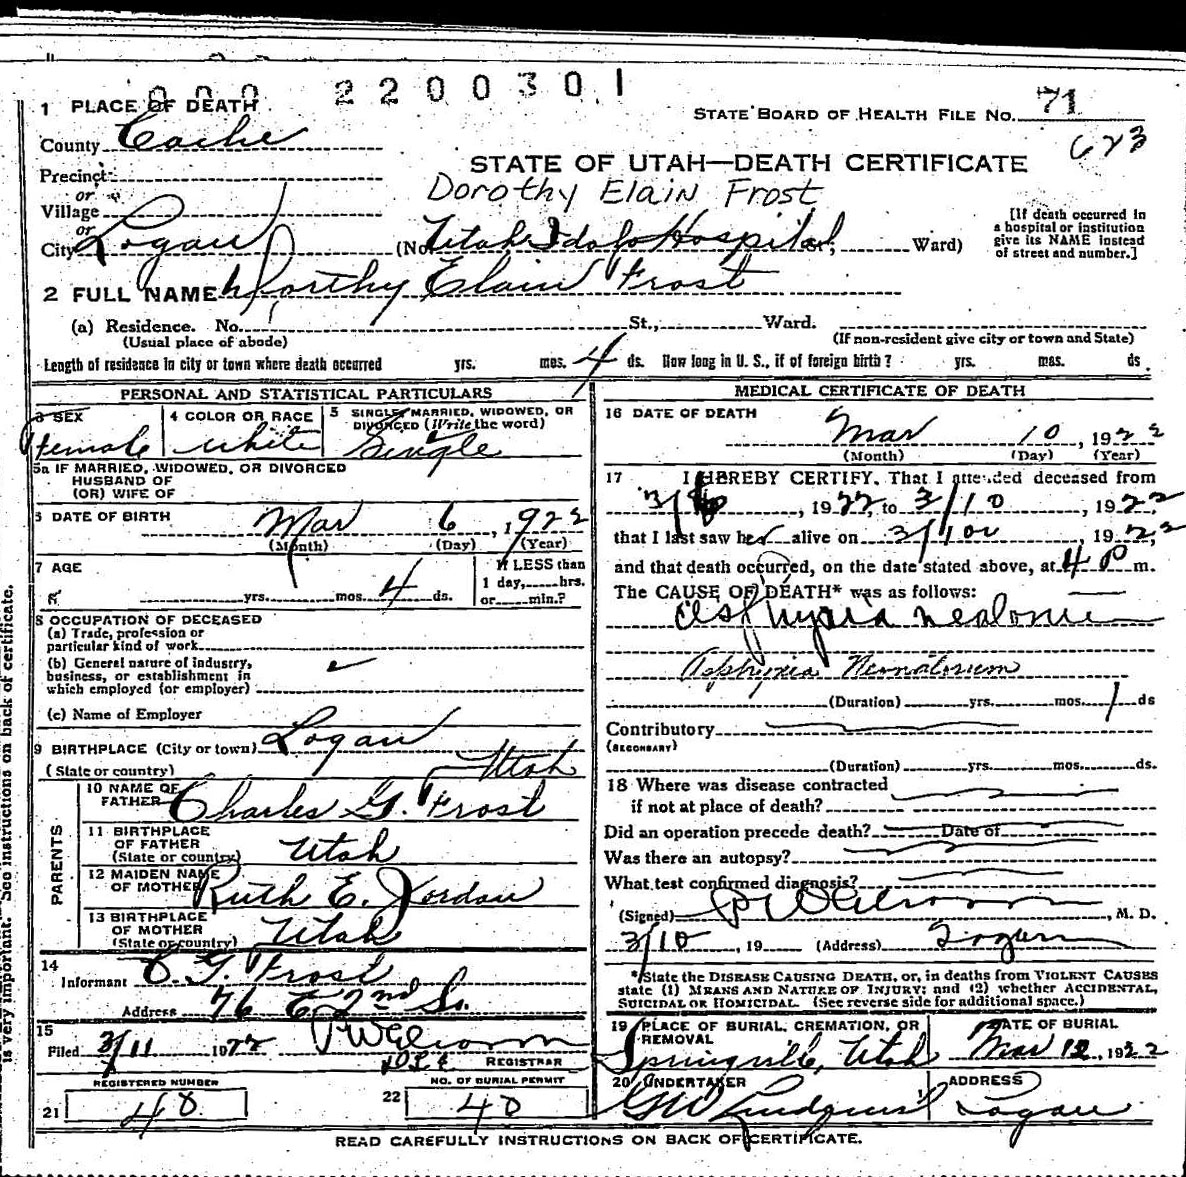 000 2200301
1 PLACE OF DEATH
STATE BOARD OF HEALTH FILE No. 71
County Cache
623
STATE OF UTAH—DEATH CERTIFICATE
Precinct
Dorothy Elain Frost
or
Village
or
City Logan (No. Utah Idaho Hospital, Ward)
[If death occurred in a hospital or institution give its NAME instead of street and number.]
2 FULL NAME Dorthy Elain Frost
(a) Residence. No. St., Ward.
(Usual place of abode) (If non-resident give city or town and State)
Length of residence in city or town where death occurred yrs. mos. 4 ds. How long in U. S., if of foreign birth? yrs. mos. ds.
PERSONAL AND STATISTICAL PARTICULARS
3 SEX Female
4 COLOR OR RACE white
5 SINGLE, MARRIED, WIDOWED, OR DIVORCED (Write the word) Single
5a IF MARRIED, WIDOWED, OR DIVORCED
HUSBAND OF
(OR) WIFE OF
6 DATE OF BIRTH Mar 6, 1922
(Month) (Day) (Year)
7 AGE yrs. mos. 4 ds.
If LESS than 1 day, hrs. or min.?
8 OCCUPATION OF DECEASED
(a) Trade, profession or
particular kind of work
(b) General nature of industry,
business, or establishment in
which employed (or employer)
(c) Name of Employer
9 BIRTHPLACE (City or town) Logan
(State or country) Utah
PARENTS
10 NAME OF FATHER Charles G. Frost
11 BIRTHPLACE OF FATHER (State or country) Utah
12 MAIDEN NAME OF MOTHER Ruth E. Jordan
13 BIRTHPLACE OF MOTHER (State or country) Utah
14 Informant C. G. Frost
Address 76 E 2nd So.
15 Filed 3/11 1922
REGISTRAR
REGISTERED NUMBER
21 48
NO. OF BURIAL PERMIT
22 40
MEDICAL CERTIFICATE OF DEATH
16 DATE OF DEATH
Mar 10, 1922
(Month) (Day) (Year)
17 I HEREBY CERTIFY, That I attended deceased from
3/6, 1922, to 3/10, 1922
that I last saw her alive on 3/10, 1922,
and that death occurred, on the date stated above, at 4 P m.
The CAUSE OF DEATH* was as follows:
Asphyxia
Asphyxia Neonatorum
(Duration) yrs. mos. 1 ds
Contributory
(SECONDARY)
(Duration) yrs. mos. ds.
18 Where was disease contracted
if not at place of death?
Did an operation precede death? Date of
Was there an autopsy?
What test confirmed diagnosis?
(Signed) , M. D.
3/10, 19 (Address) Logan
*State the DISEASE CAUSING DEATH, or, in deaths from VIOLENT CAUSES
state (1) MEANS AND NATURE OF INJURY; and (2) whether ACCIDENTAL,
SUICIDAL OR HOMICIDAL. (See reverse side for additional space.)
19 PLACE OF BURIAL, CREMATION, OR REMOVAL
Springville, Utah
DATE OF BURIAL
Mar 12, 1922
20 UNDERTAKER
GW Lindquist
ADDRESS
Logan
READ CAREFULLY INSTRUCTIONS ON BACK OF CERTIFICATE.
is very important. See instructions on back of certificate.